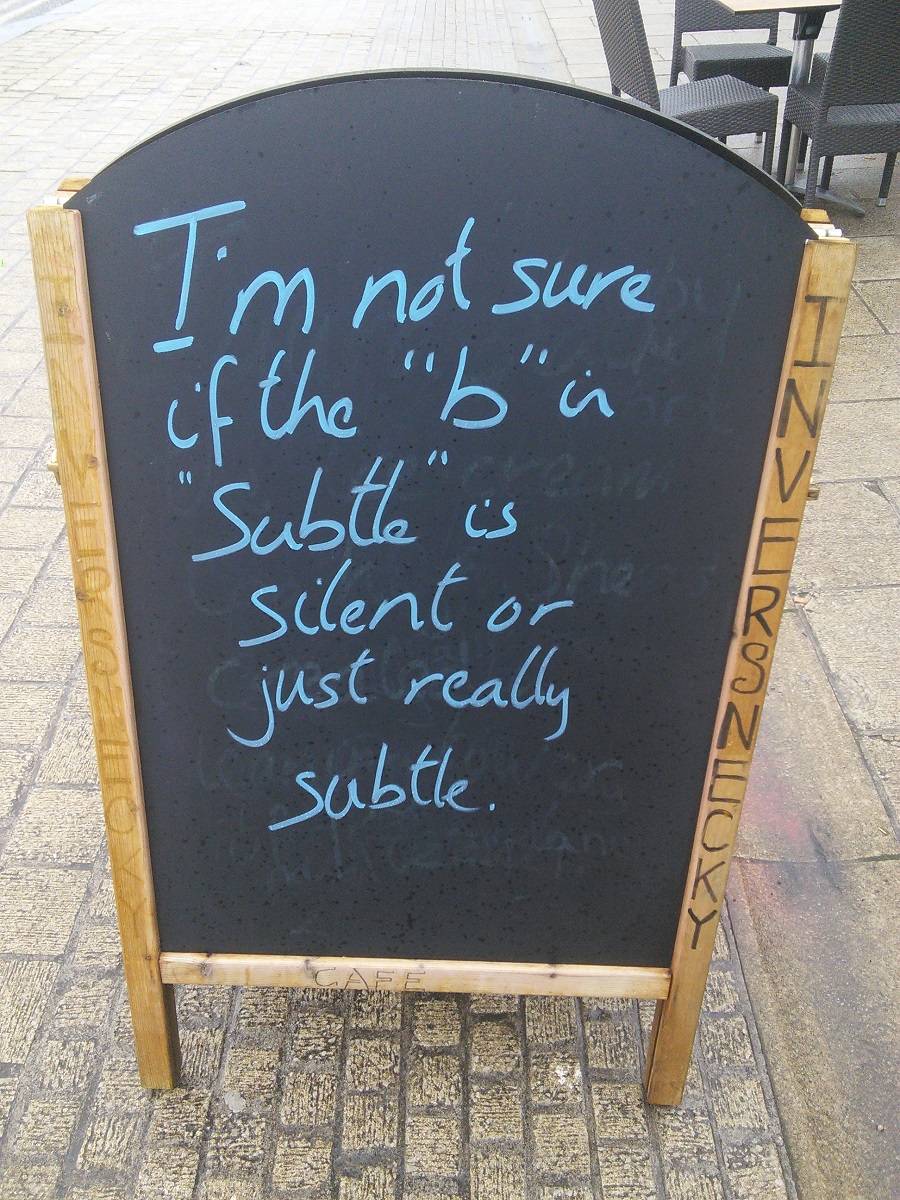 I'm not sure
if the "b" in
"Subtle" is
silent or
just really
subtle.
INVERSNECKY
INVERSNECKY
CAFE